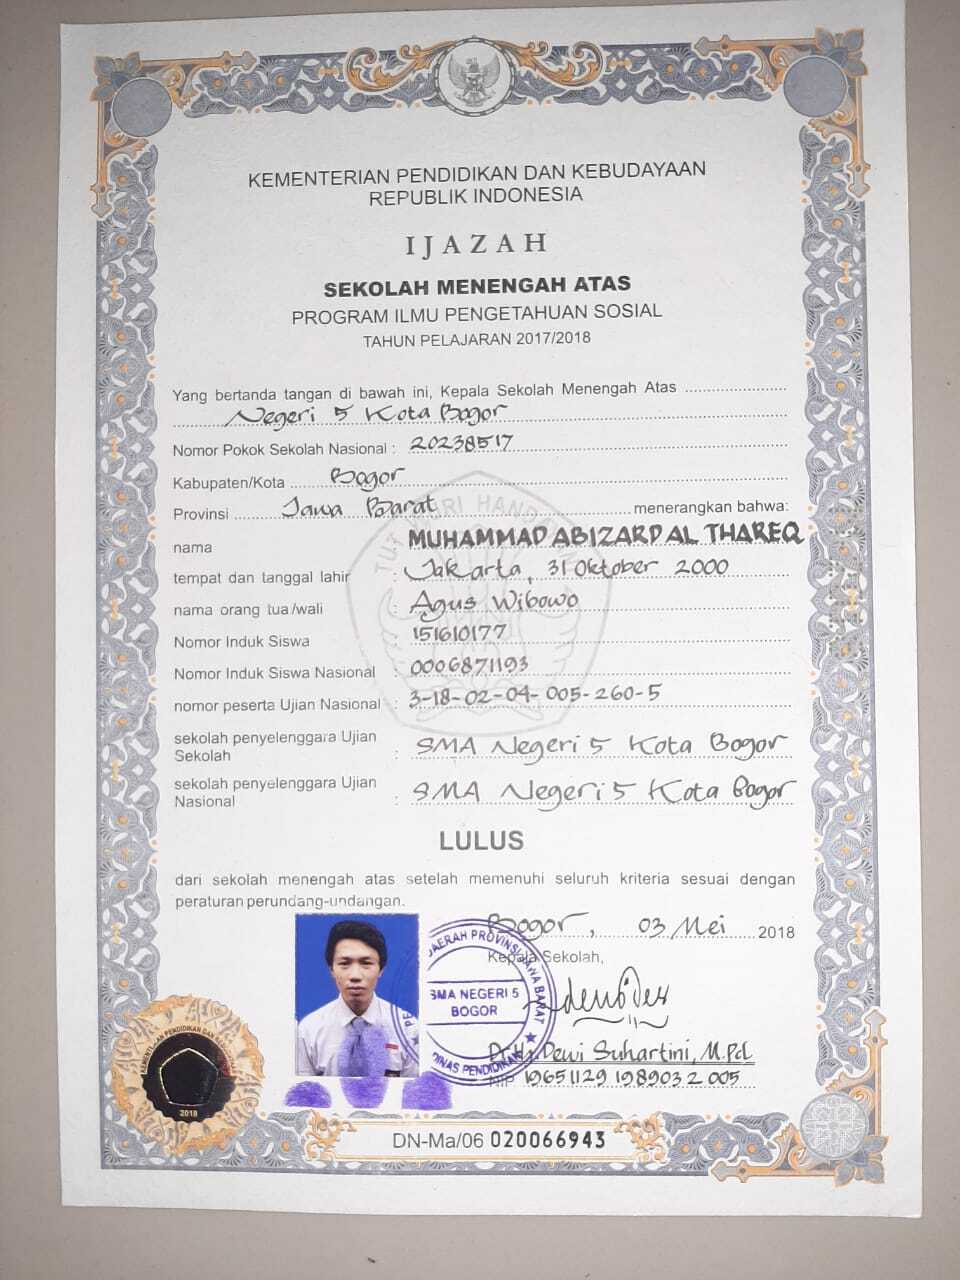 KEMENTERIAN PENDIDIKAN DAN KEBUDAYAAN
REPUBLIK INDONESIA
IJAZAH
SEKOLAH MENENGAH ATAS
PROGRAM ILMU PENGETAHUAN SOSIAL
TAHUN PELAJARAN 2017/2018
Yang bertanda tangan di bawah ini, Kepala Sekolah Menengah Atas
Negeri 5 Kota Bogor
Nomor Pokok Sekolah Nasional : 20238517
Kabupaten/Kota Bogor
Provinsi Jawa Barat menerangkan bahwa:
nama MUHAMMAD ABIZARD AL THAREQ
tempat dan tanggal lahir : Jakarta, 31 Oktober 2000
nama orang tua/wali : Agus Wibowo
Nomor Induk Siswa : 151610177
Nomor Induk Siswa Nasional : 0006871193
nomor peserta Ujian Nasional : 3-18-02-04-005-260-5
sekolah penyelenggara Ujian
Sekolah : SMA Negeri 5 Kota Bogor
sekolah penyelenggara Ujian
Nasional : SMA Negeri 5 Kota Bogor
LULUS
dari sekolah menengah atas setelah memenuhi seluruh kriteria sesuai dengan
peraturan perundang-undangan.
Bogor, 03 Mei 2018
Kepala Sekolah,
DAERAH PROVINSI JAWA BARAT
SMA NEGERI 5
BOGOR
DINAS PENDIDIKAN
Dr. Hj. Dewi Suhartini, M.Pd
NIP 19651129 198903 2 005
KEMENTERIAN PENDIDIKAN DAN KEBUDAYAAN
2018
DN-Ma/06 020066943